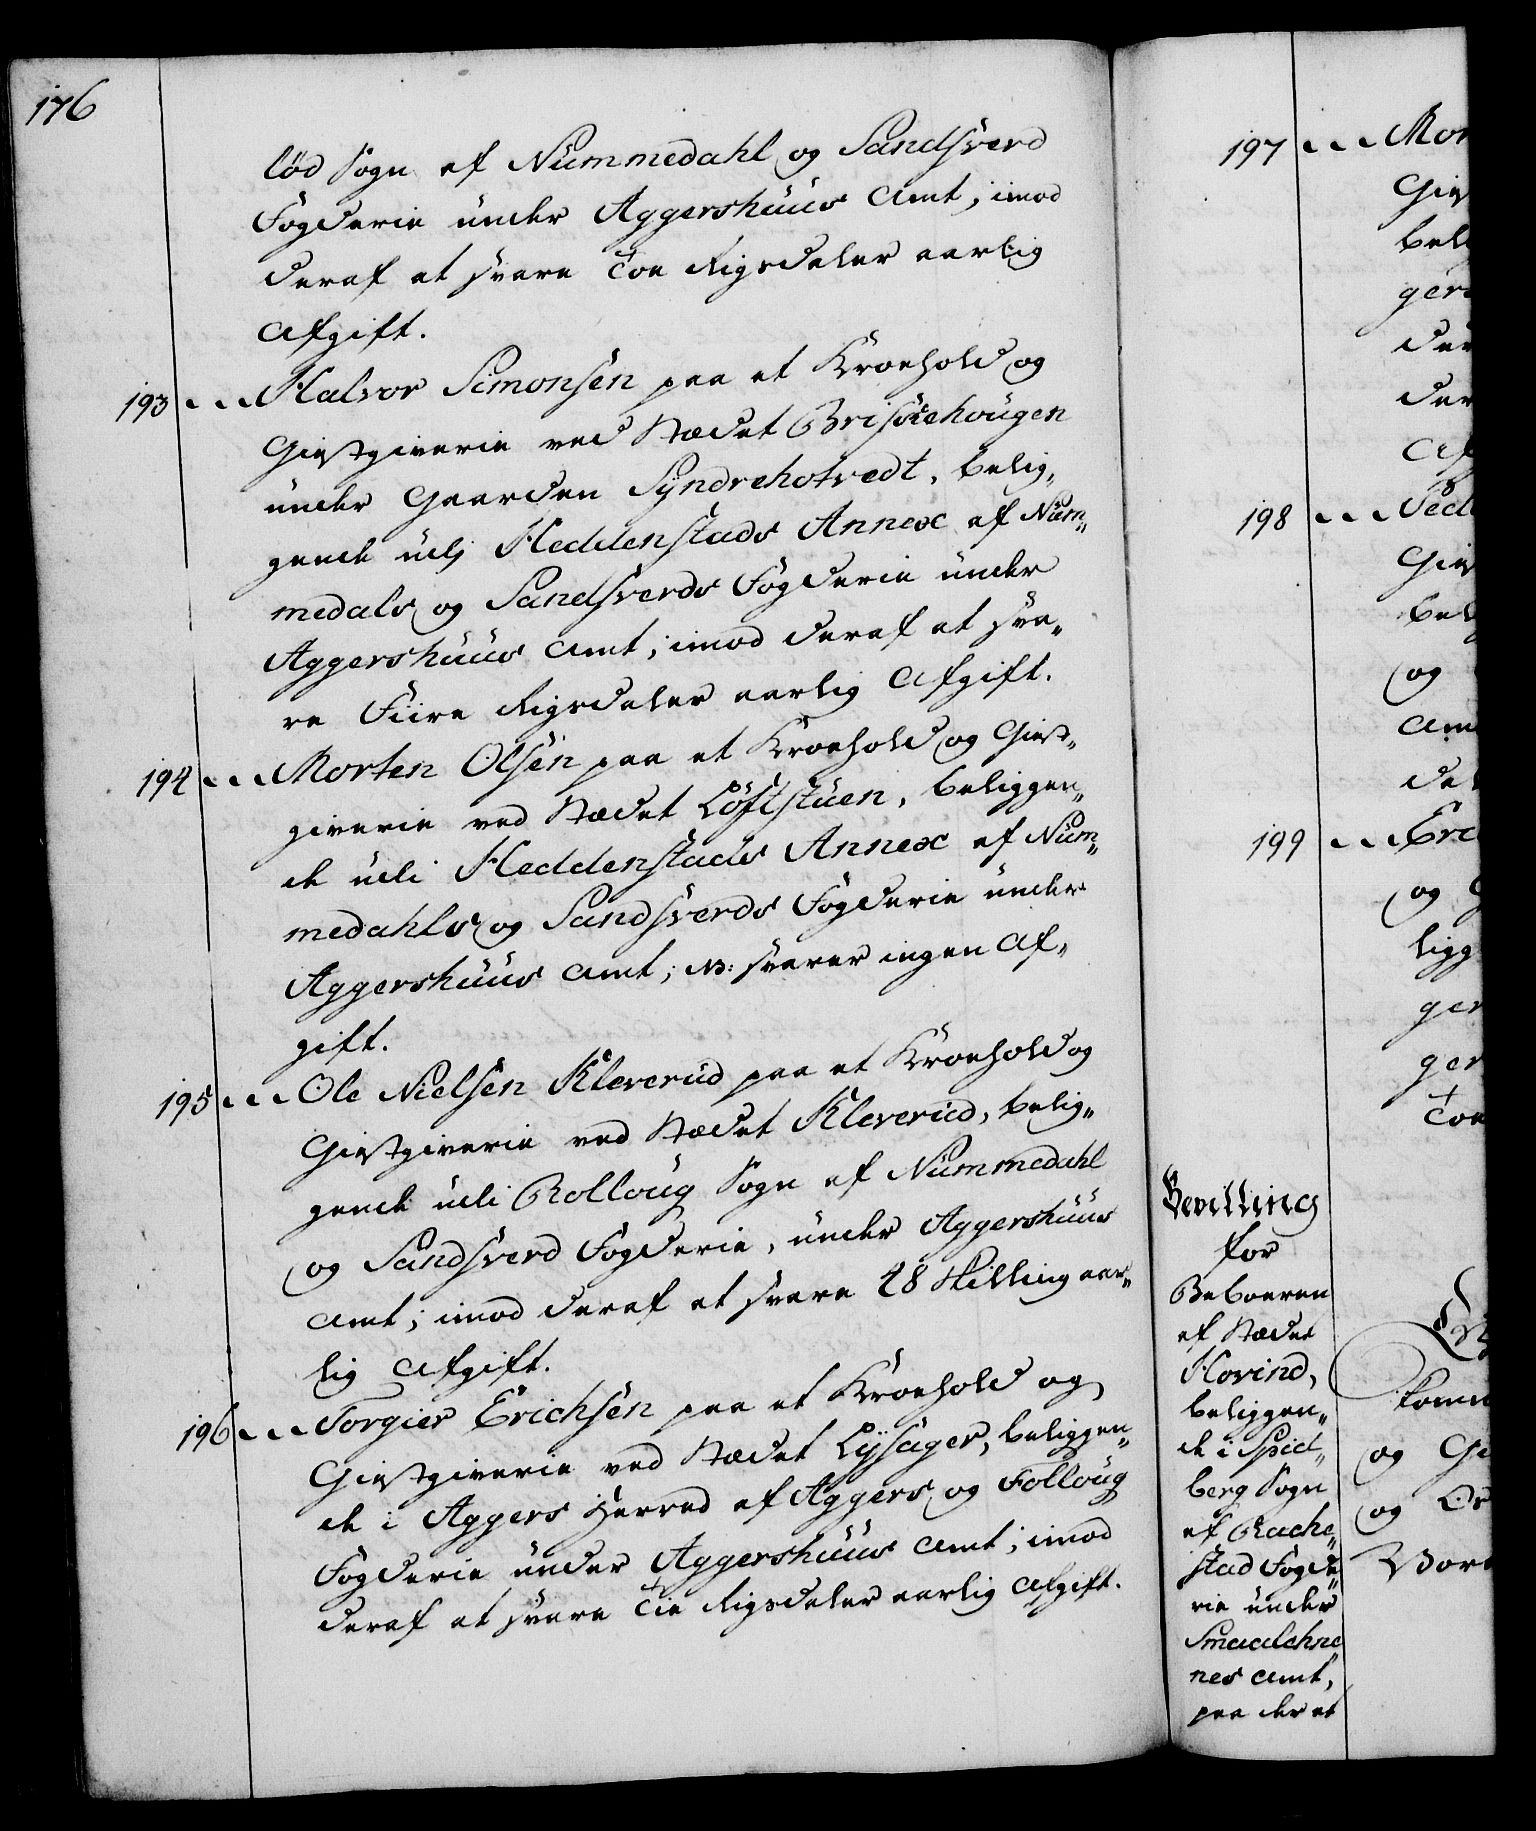 176
löd Sogn af Nummedahl og Sandsverd
Fogderie under Aggershuus Amt; imod
deraf at svare Toe Rigsdaler aarlig
Afgift.
193 Halvor Simonsen paa et Kroehold og
Giestgiverie ved Stædet
under Gaarden Syndrehotvedt, belig„
gende udj Heddenstads Annex af Num„
medals og Sandsverds Fogderie under
Aggershuus Amt; imod deraf at sva„
re Fiire Rigsdaler aarlig Afgift.
194 Morten Olsen paa et Kroehold og Giest„
giverie ved Stædet Löftstuen, beliggen„
de udi Heddenstads Annex af Num„
medahls og Sandsverds Fogderie under
Aggershuus Amt; NB: svarer ingen Af„
gift.
195 Ole Nielsen Kleverud paa et Kroehold og
Giestgiverie ved Stædet Kleverud, belig„
gende udi Rolloug Sogn af Nummedahl
og Sandsverd Fogderie, under Aggershuus
Amt; imod deraf at svare 48 Skilling aar„
lig Afgift.
196 Torgier Erichsen paa et Kroehold og
Giestgiverie ved Stædet Lysager, beliggen„
de i Aggers Herred af Aggers og Folloug
Fogderie under Aggershuus Amt; imod
deraf at svare Tie Rigsdaler aarlig Afgift.
197 Mor
Gies
beli
ger
der
der
Af
198 Ped
Gies
beli
og
Am
de
199 Eri
og G
ligg
ger
ger
Toe
Bevilling
for
Beboeren
af Stædet
Hovind,
beliggen„
de i Spid„
berg Sogn
af Rache„
stad Fogde„
rie under
Smaalehne„
nes Amt,
paa der at
og Gi
og
Vor